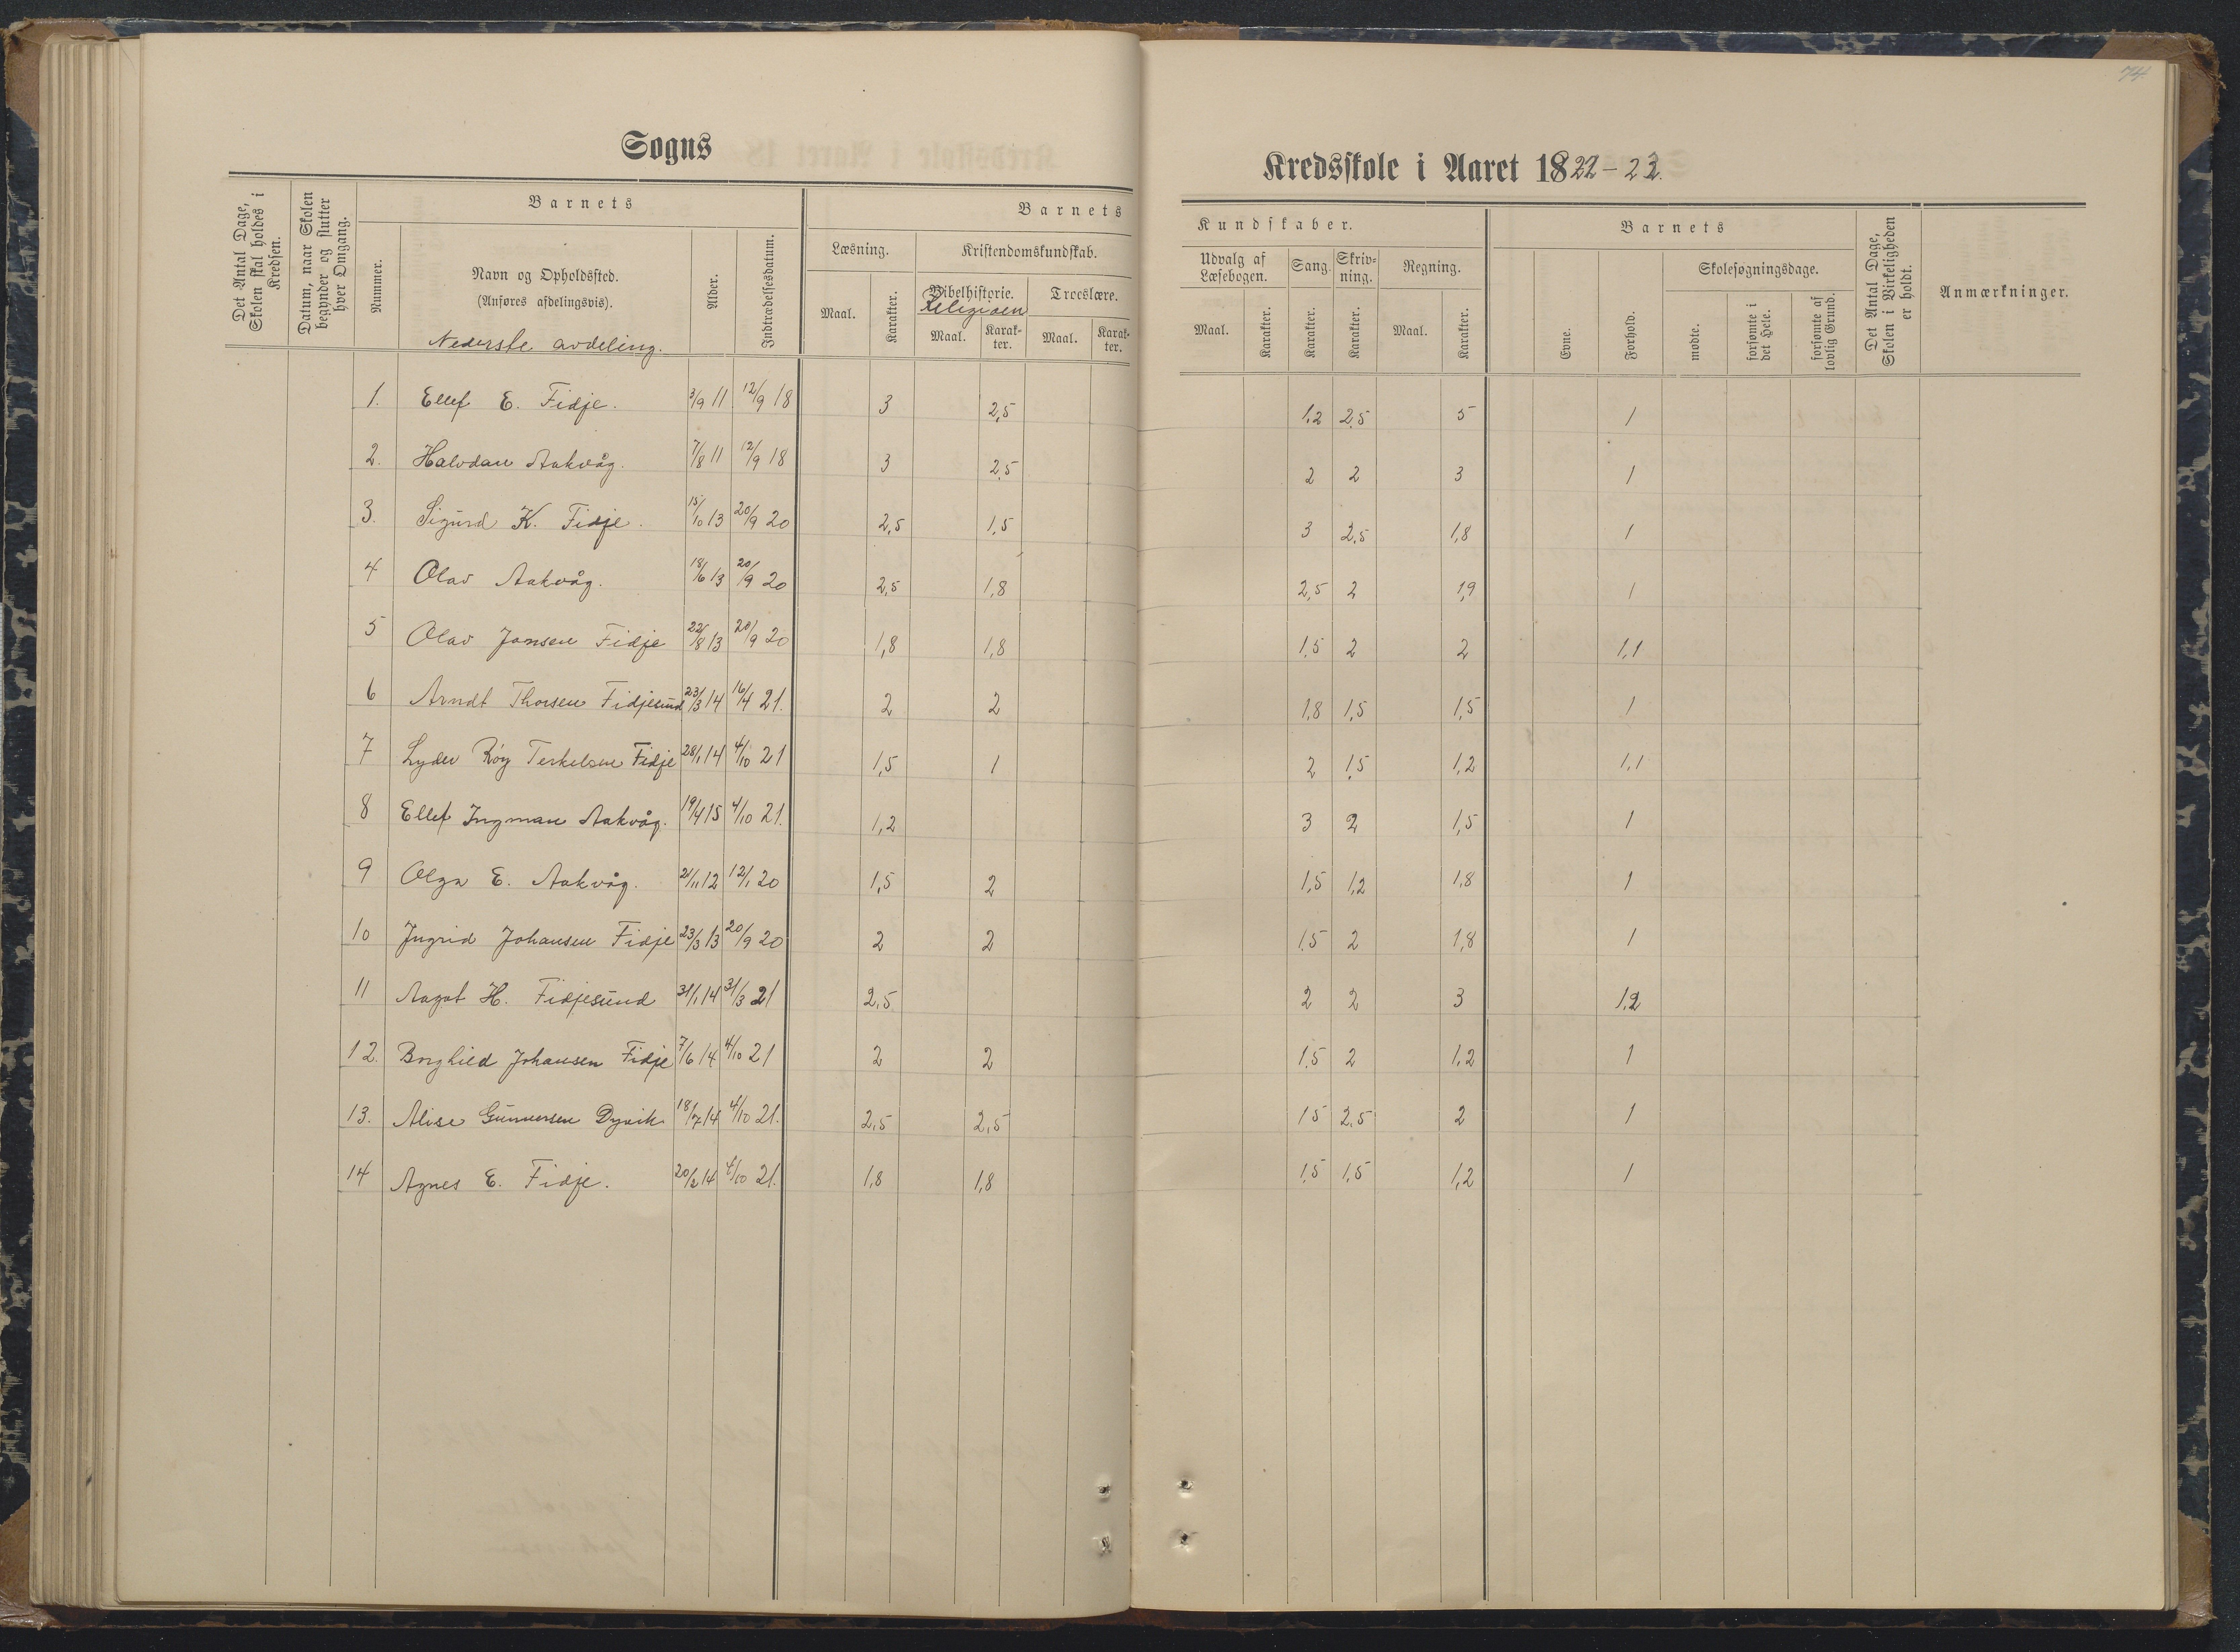 74
Sogns
Kredsskole i Aaret 1822-23.
Det Antal Dage, Skolen skal holdes i Kredsen.
Datum, naar Skolen begynder og slutter hver Omgang.
Nummer.
Barnets
Navn og Opholdssted.
(Anføres afdelingsvis).
Nederste avdeling.
Alder.
Indtrædelsesdatum.
Barnets
Læsning.
Maal.
Karakter.
Kristendomskundskab.
Bibelhistorie.
Religioen
Maal.
Karakter.
Troeslære.
Maal.
Karakter.
Kundskaber.
Udvalg af Læsebogen.
Maal.
Karakter.
Sang.
Karakter.
Skrivning.
Karakter.
Regning.
Maal.
Karakter.
Barnets
Evne.
Forhold.
Skolesøgningsdage.
mødte.
forsømte i det Hele.
forsømte af lovlig Grund.
Det Antal Dage, Skolen i Virkeligheden er holdt.
Anmærkninger.
1. Ellef E. Fidje. 3/9 11 12/9 18 3 2,5 1,2 2,5 5 1
2. Halvdan Aakvåg. 7/8 11 12/9 18 3 2,5 2 2 3 1
3. Sigurd K. Fidje. 15/10 13 20/9 20 2,5 1,5 3 2,5 1,8 1
4 Olav Aakvåg. 18/6 13 20/9 20 2,5 1,8 2,5 2 1,9 1
5 Olav Jansen Fidje 22/8 13 20/9 20 1,8 1,8 1,5 2 2 1,1
6 Arndt Thorsen Fidjesund 23/3 14 16/4 21. 2 2 1,8 1,5 1,5 1
7 Lyder Roy Terkelsen Fidje 28/1 14 4/10 21 1,5 1 2 1,5 1,2 1,1
8 Ellef Ingman Aakvåg. 19/4 15 4/10 21. 1,2 3 2 1,5 1
9 Olga E. Aakvåg. 21/11 12 12/1 20 1,5 2 1,5 1,2 1,8 1
10 Ingrid Johansen Fidje 23/3 13 20/9 20 2 2 1,5 2 1,8 1
11 Aagot H. Fidjesund 31/1 14 31/3 21 2,5 2 2 3 1,2
12. Borghild Johansen Fidje 7/6 14 4/10 21 2 2 1,5 2 1,2 1
13. Alise Gunnersen Dyvik 18/7 14 4/10 21. 2,5 2,5 15 2,5 2 1
14 Agnes E. Fidje. 20/2 14 4/10 21. 1,8 1,8 1,5 1,5 1,2 1